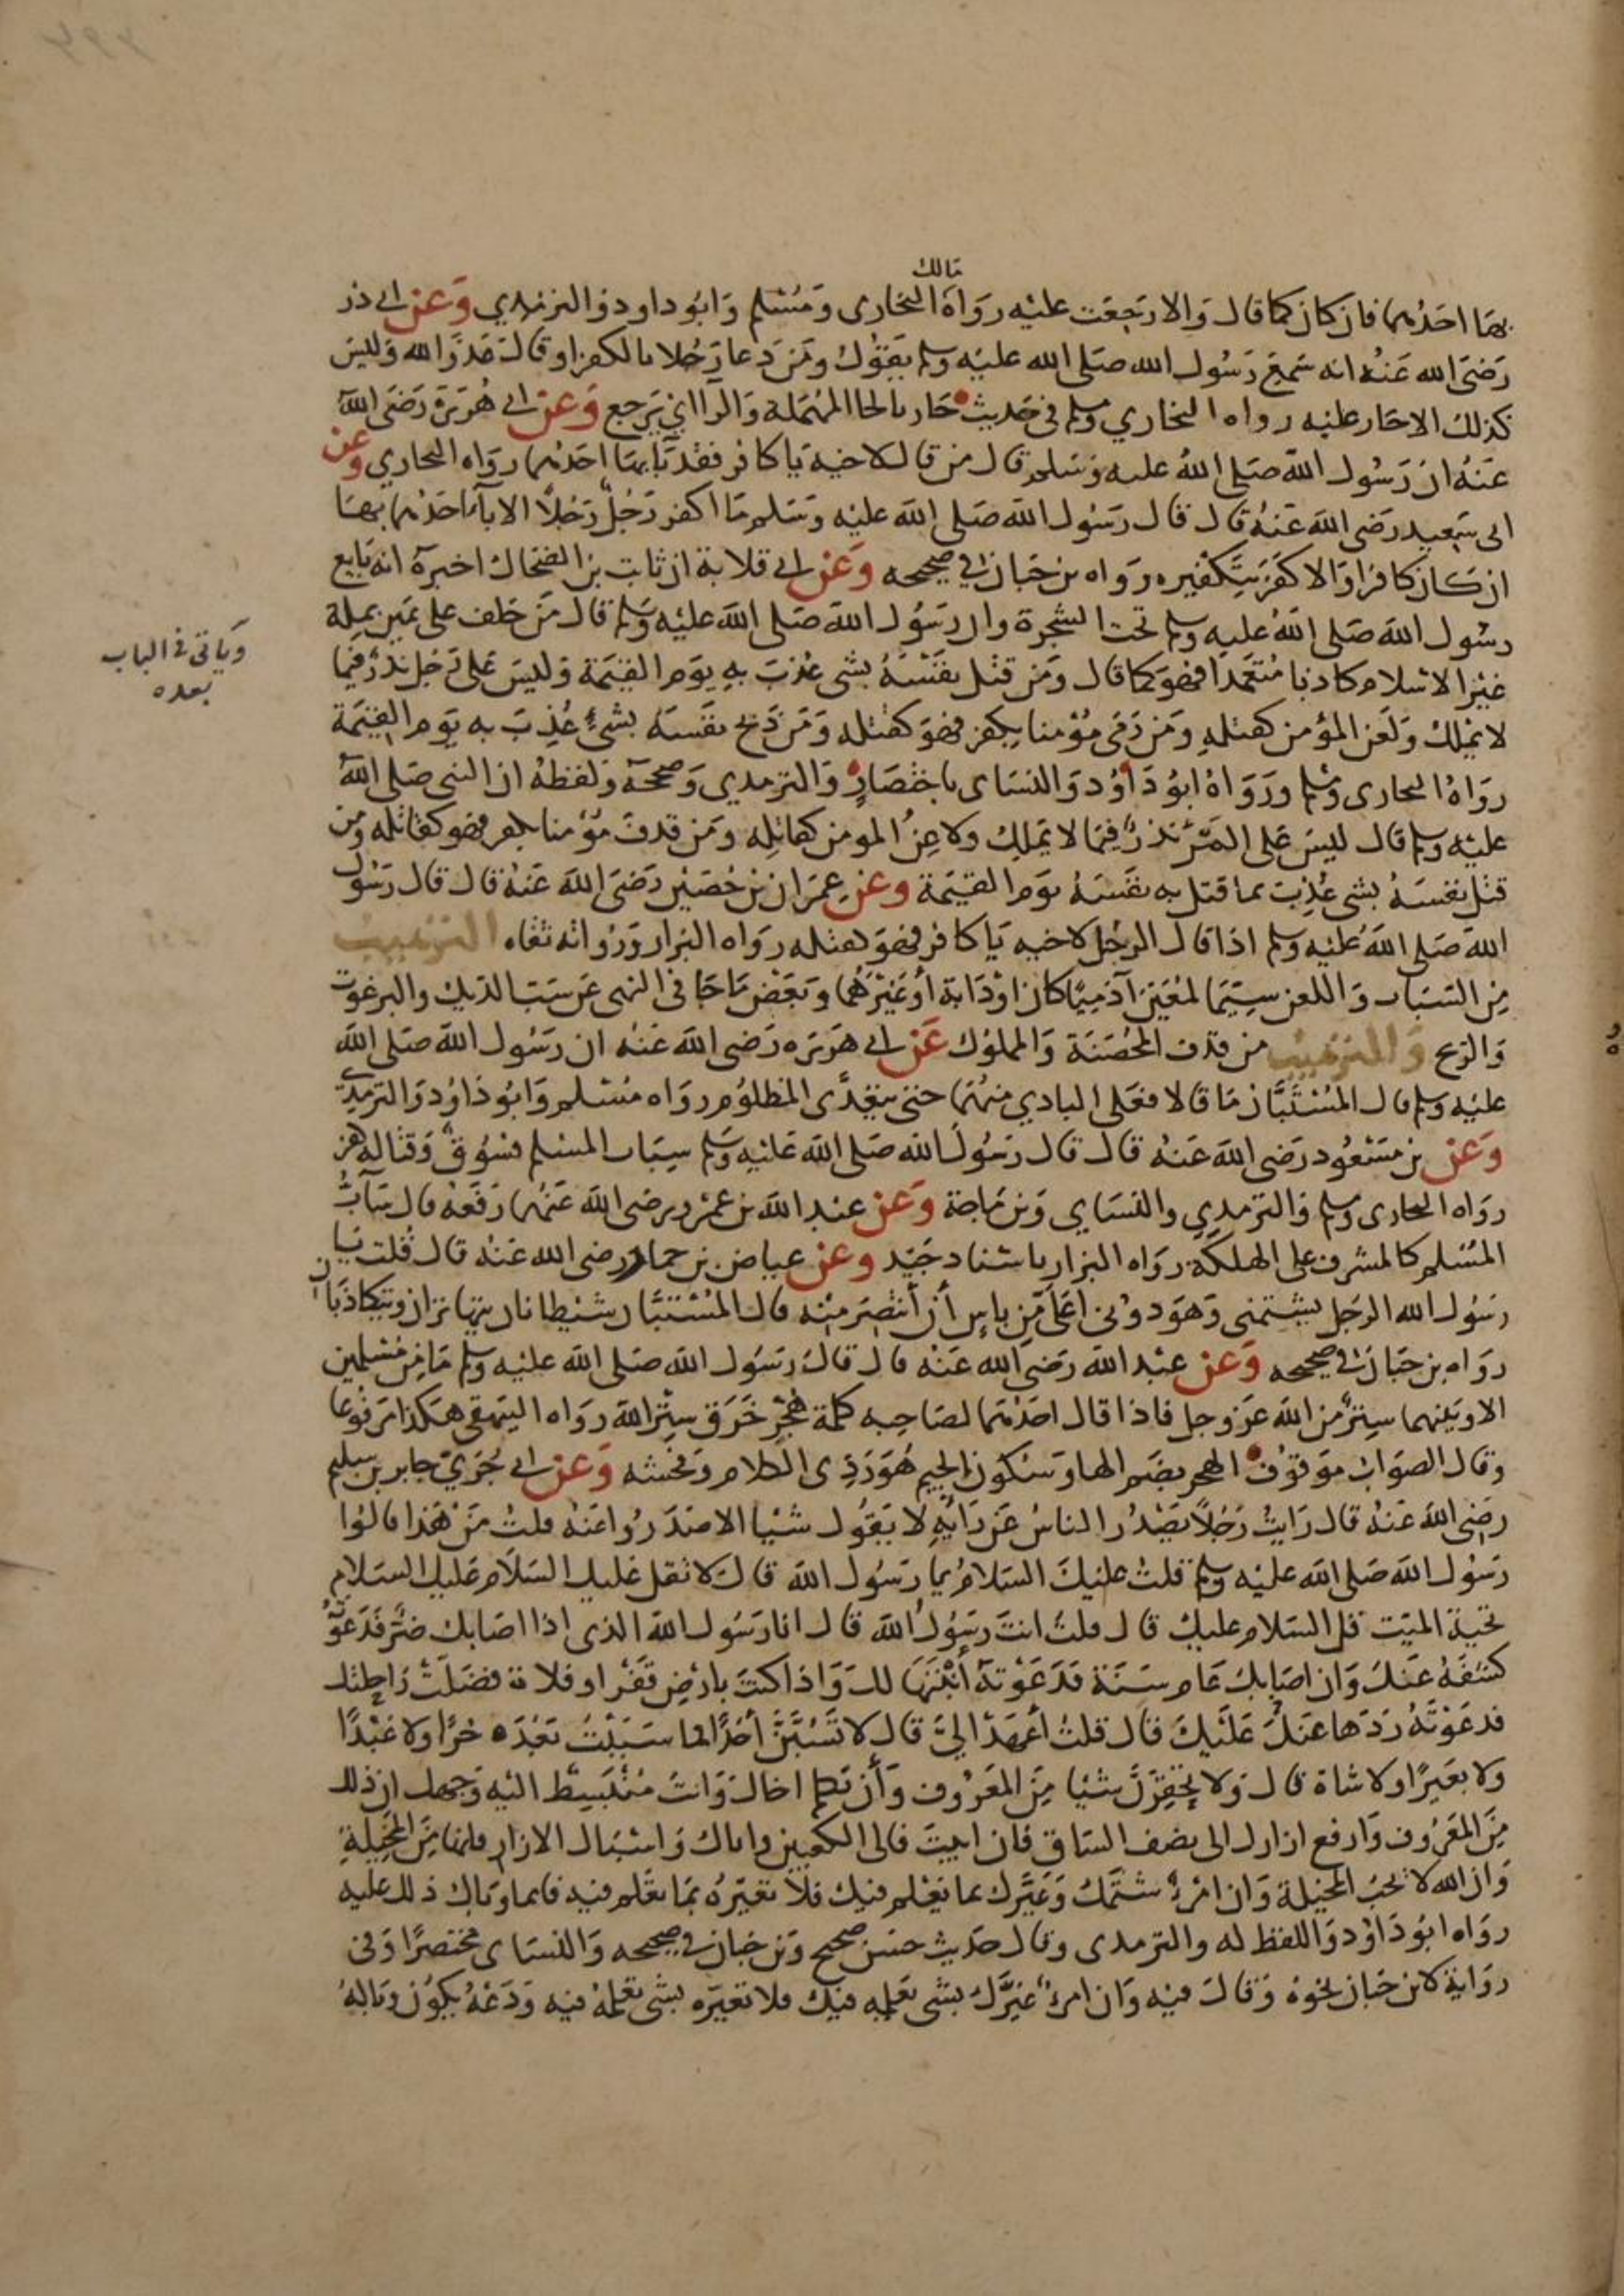 مالك
بها احدهما فان كان كما قال والا رجعت عليه رواه البخارى ومسلم وابوداود والترمذي وعن ابى ذر
رضى الله عنه انه سمع رسول الله صلى الله عليه وسلم يقول ومن دعا رجلا بالكفر او قال عدو الله وليس
كذلك الا حار عليه رواه البخاري ومسلم فى حديث حار بالحا المهملة والرا اى يرجع وعن ابى هريرة رضى الله
عنه ان رسول الله صلى الله عليه وسلم قال من قال لاخيه يا كافر فقد باء بها احدهما رواه البخاري وعن
ابى سعيد رضى الله عنه قال قال رسول الله صلى الله عليه وسلم ما اكفر رجل رجلا الا باء احدهما بها
ان كان كافرا والا كفر بتكفيره رواه بن حبان في صحيحه وعن ابى قلابة ان ثابت بن الضحاك اخبره انه بايع
رسول الله صلى الله عليه وسلم تحت الشجرة وان رسول الله صلى الله عليه وسلم قال من حلف على يمين بملة
غير الاسلام كاذبا متعمدا فهو كما قال ومن قتل نفسه بشى عذب به يوم القيمة وليس على رجل نذر فيما
لا يملك ولعن المؤمن كقتله ومن رمى مؤمنا بكفر فهو كقتله ومن ذبح نفسه بشئ عذب به يوم القيمة
رواه البخارى ومسلم ورواه ابو داود والنساى باختصار والترمذي وصححه ولفظه ان النبى صلى الله
عليه وسلم قال ليس على المرء نذر فيما لا يملك ولاعن المومن كقاتله ومن قذف مؤمنا بكفر فهو كقاتله ومن
قتل نفسه بشى عذب بما قتل به نفسه يوم القيمة وعن عمران بن حصين رضى الله عنه قال قال رسول
الله صلى الله عليه وسلم اذا قال الرجل لاخيه يا كافر فهو كقتله رواه البزار ورواته ثقاه الترهيب
من السباب واللعن سيما لمعين آدميا كان او دابة أو غيرهما وبعض ما جا فى النهى عن سب الديك والبرغوث
والريح والترهيب من قذف المحصنة والمملوك عن ابى هريره رضى الله عنه ان رسول الله صلى الله
عليه وسلم قال المستبان ما قالا فعلى البادي منهما حتى يتعدى المظلوم رواه مسلم وابو داود والترمذي
وعن بن مسعود رضى الله عنه قال قال رسول الله صلى الله عليه وسلم سباب المسلم فسوق وقتاله كفر
رواه البخارى ومسلم والترمذي والنساي وبن ماجة وعن عبد الله بن عمرو رضى الله عنهما رفعه قال ساب
المسلم كالمشرف على الهلكة رواه البزار باسناد جيد وعن عياض بن حمار رضى الله عنه قال قلت يا
رسول الله الرجل يشتمنى وهو دونى اعلى من باس أن أنتصر منه قال المستبان شيطانان يتهاتران ويتكاذبان
رواه بن حبان في صحيحه وعن عبد الله رضى الله عنه قال قال رسول الله صلى الله عليه وسلم ما من مسلمين
الا وبينهما ستر من الله عز وجل فاذا قال احدهما لصاحبه كلمة هجر خرق ستر الله رواه البيهقى هكذا مرفوعا
وقال الصواب موقوف الهجر بضم الها وسكون الجيم هو ردى الكلام وفحشه وعن ابى جرى جابر بن سليم
رضى الله عنه قال رايت رجلا يصدر الناس عن رايه لا يقول شيا الا صدروا عنه قلت من هذا قالوا
رسول الله صلى الله عليه وسلم قلت عليك السلام يا رسول الله قال لا تقل عليك السلام عليك السلام
تحية الميت قل السلام عليك قال قلت انت رسول الله قال انا رسول الله الذى اذا اصابك ضر فدعوته
كشفه عنك وان اصابك عام سنة فدعوته أنبتها لك واذا كنت بارض قفر او فلاة فضلت راحلتك
فدعوته ردها عليك قال قلت أعهد الي قال لا تسبن أحدا فما سببت بعده حرا ولا عبدا
ولا بعيرا ولا شاة قال ولا تحقرن شيا من المعروف وأن تكلم اخاك وانت منبسط اليه وجهك ان ذلك
من المعروف وارفع ازارك الى نصف الساق فان ابيت فالى الكعبين واياك واسبال الازار فانها من المخيلة
وان الله لا يحب المخيلة وان امرؤ شتمك وعيرك بما يعلم فيك فلا تعيره بما تعلم فيه فانما وبال ذلك عليه
رواه ابو داود واللفظ له والترمذى وقال حديث حسن صحيح وبن حبان في صحيحه والنساى مختصرا وفى
رواية لابن حبان نحوه وقال فيه وان امرؤ عيرك بشى يعلمه فيك فلا تعيره بشى تعلمه فيه ودعه يكون وباله
وياتى فى الباب
بعده